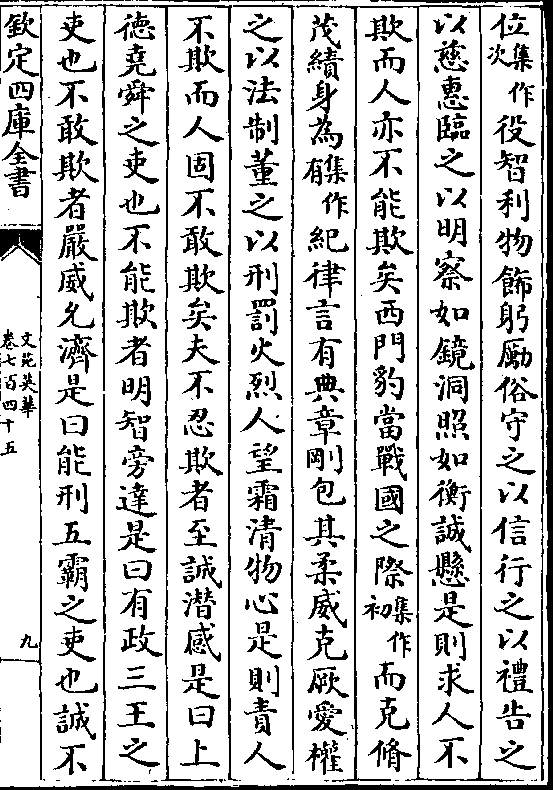 位集作次役智利物飾躬勵俗守之以信行之以禮告之
以慈惠臨之以明察如鏡洞照如衡誠懸是則求人不
欺而人亦不能欺矣西門豹當戰國之際集作初而克脩
茂績身為集作有紀律言有典章剛包其柔威克厥愛權
之以法制董之以刑罰火烈人望霜清物心是則責人
不欺而人固不敢欺矣夫不忍欺者至誠潛感是曰上
德堯舜之吏也不能欺者明智旁達是曰有政三王之
吏也不敢欺者嚴威允濟是曰能刑五霸之吏也誠不
欽定四庫全書
文苑英華
卷七百四十五
九